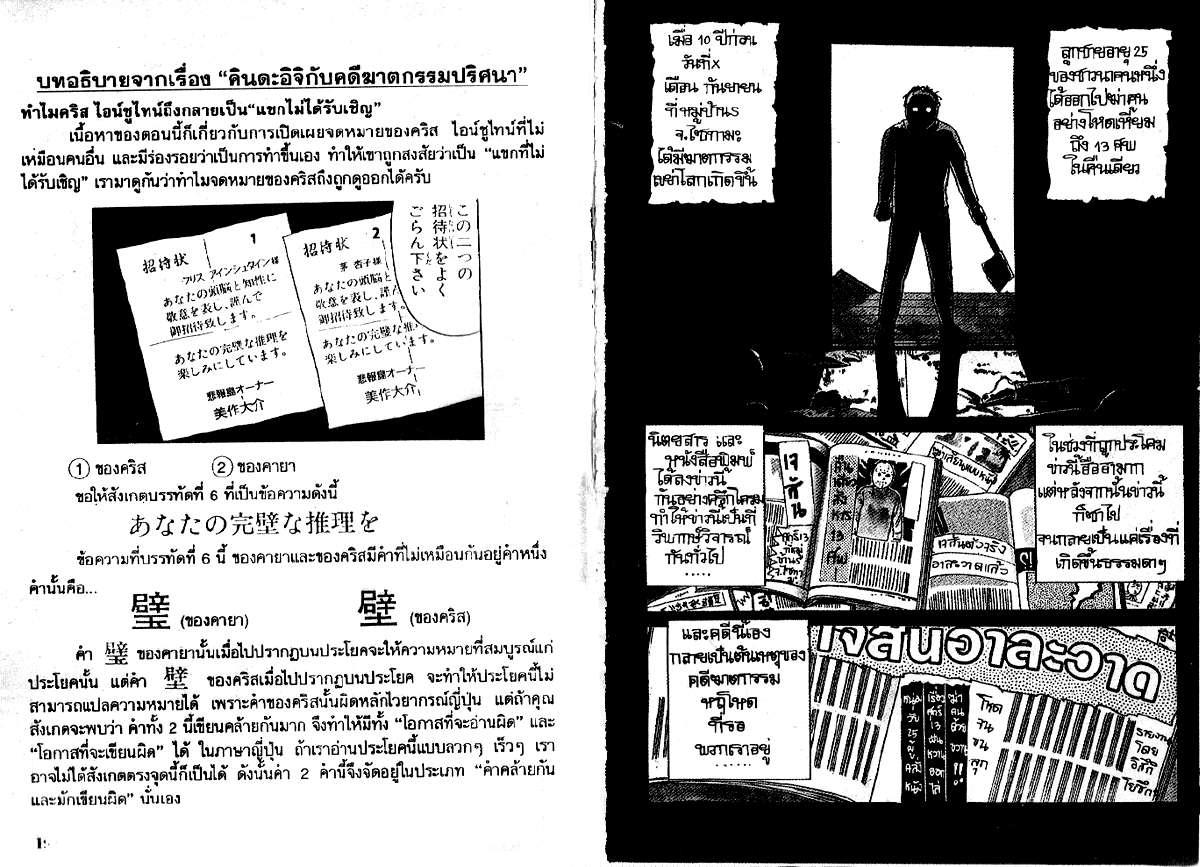 บทอธิบายจากเรื่อง “คินดะอิจิกับคดีฆาตกรรมปริศนา”
ทำไมคริส ไอน์ชูไทน์ถึงกลายเป็น“แขกไม่ได้รับเชิญ”
เนื้อหาของตอนนี้ก็เกี่ยวกับการเปิดเผยจดหมายของคริส ไอน์ชูไทน์ที่ไม่
เหมือนคนอื่น และมีร่องรอยว่าเป็นการทำขึ้นเอง ทำให้เขาถูกสงสัยว่าเป็น “แขกที่ไม่
ได้รับเชิญ” เรามาดูกันว่าทำไมจดหมายของคริสถึงถูกดูออกได้ครับ
1
招待状
クリス アインシュタイン様
あなたの頭脳と知性に
敬意を表し、謹んで
御招待致します。
あなたの完璧な推理を
楽しみにしています。
悲報島オーナー
美作大介
2
招待状
茅 杏子様
あなたの頭脳と
敬意を表し、謹ん
御招待致します。
あなたの完璧な推
楽しみにしています。
悲報島オーナー
美作大介
この二つの
招待状をよく
ごらん下さい
① ของคริส ② ของคายา
ขอให้สังเกตบรรทัดที่ 6 ที่เป็นข้อความดังนี้
あなたの完璧な推理を
ข้อความที่บรรทัดที่ 6 นี้ ของคายาและของคริสมีคำที่ไม่เหมือนกันอยู่คำหนึ่ง
คำนั้นคือ...
璧 (ของคายา) 壁 (ของคริส)
คำ 璧 ของคายานั้นเมื่อไปปรากฏบนประโยคจะให้ความหมายที่สมบูรณ์แก่
ประโยคนั้น แต่คำ 壁 ของคริสเมื่อไปปรากฏบนประโยค จะทำให้ประโยคนี้ไม่
สามารถแปลความหมายได้ เพราะคำของคริสนั้นผิดหลักไวยากรณ์ญี่ปุ่น แต่ถ้าคุณ
สังเกตจะพบว่า คำทั้ง 2 นี้เขียนคล้ายกันมาก จึงทำให้มีทั้ง “โอกาสที่จะอ่านผิด” และ
“โอกาสที่จะเขียนผิด” ได้ ในภาษาญี่ปุ่น ถ้าเราอ่านประโยคนี้แบบลวกๆ เร็วๆ เรา
อาจไม่ได้สังเกตตรงจุดนี้ก็เป็นได้ ดังนั้นคำ 2 คำนี้จึงจัดอยู่ในประเภท “คำคล้ายกัน
และมักเขียนผิด” นั่นเอง
เมื่อ 10 ปีก่อน
วันที่ x
เดือน กันยายน
ที่หมู่บ้าน S
จ.ไซตามะ
ได้มีฆาตกรรม
เขย่าโลกเกิดขึ้น
ลูกชายอายุ 25
ของชาวนาคนหนึ่ง
ได้ออกไปฆ่าคน
อย่างโหดเหี้ยม
ถึง 13 ศพ
ในคืนเดียว
นิตยสาร และ
หนังสือพิมพ์
ได้ลงข่าวนี้
กันอย่างครึกโครม
ทำให้ข่าวนี้เป็นที่
วิพากษ์วิจารณ์
กันทั่วไป
.....
เจสัน
เจสันตัวจริง
อาละวาดแล้ว
ในช่วงที่ถูกประโคม
ข่าวนี้ฮือฮามาก
แต่หลังจากนั้นข่าวนี้
ก็ซาไป
จนกลายเป็นแค่เรื่องที่
เกิดขึ้นธรรมดาๆ
และคดีนี้เอง
กลายเป็นต้นเหตุของ
คดีฆาตกรรม
หฤโหด
ที่รอ
พวกเราอยู่
......
เจสันอาละวาด